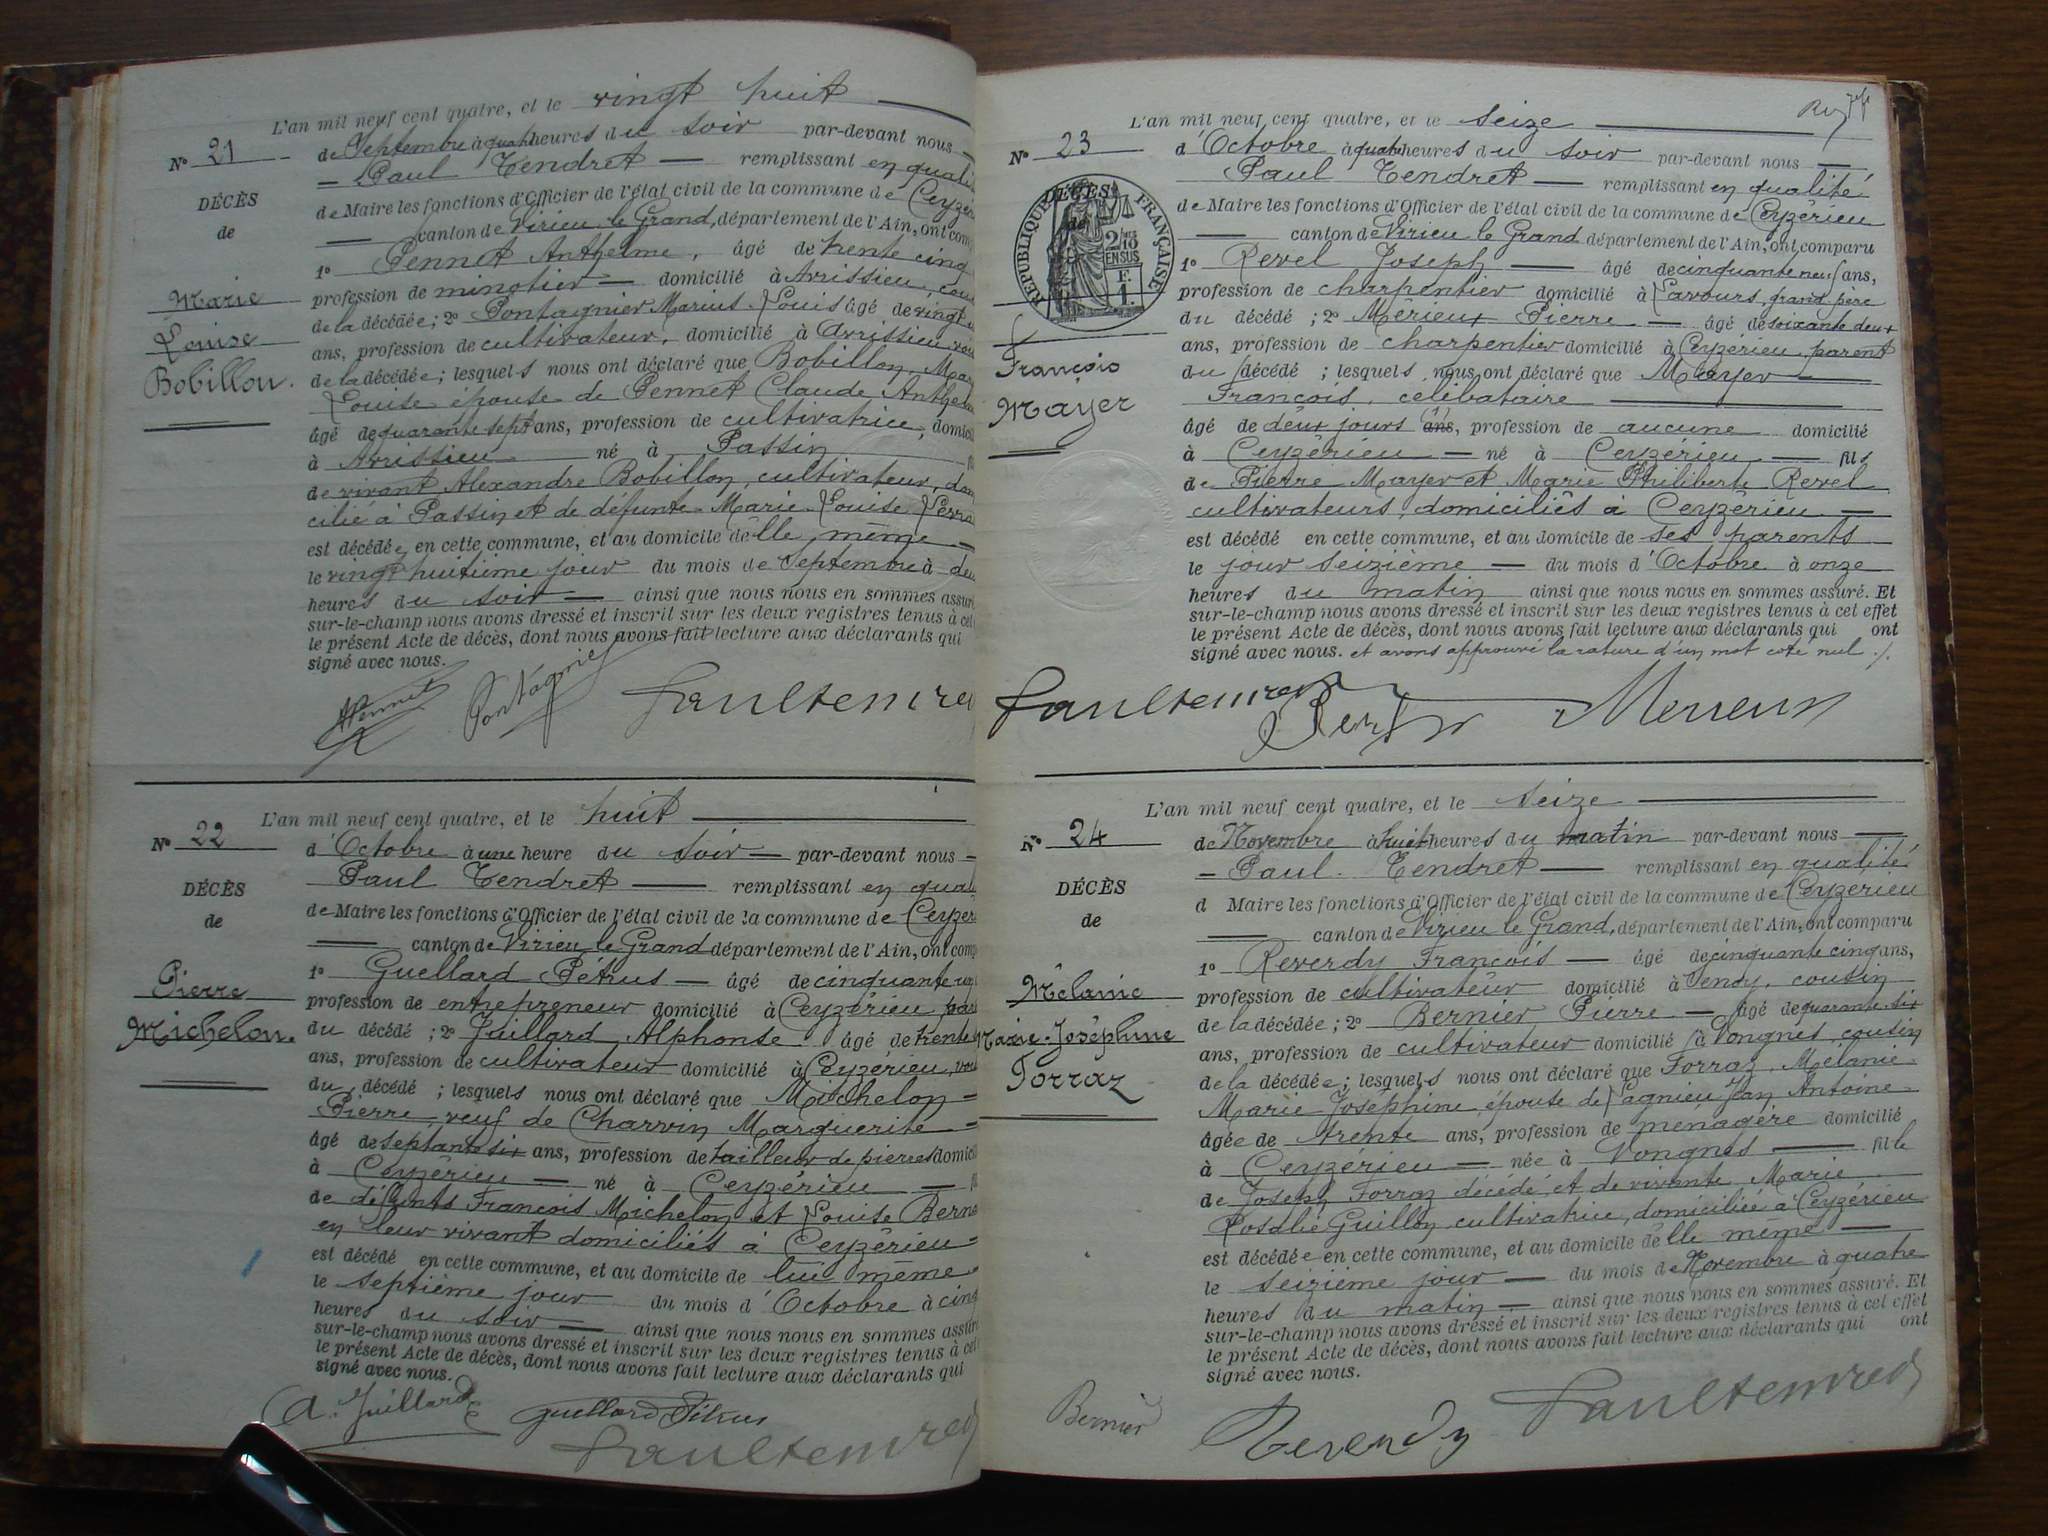 L'an mil neuf cent quatre, et le vingt huit
N° 21
de Septembre à quatre heures du soir par-devant nous
Paul Tendret remplissant en quali
DÉCÈS
de Maire les fonctions d'Officier de l'état civil de la commune de Ceyzér
de
canton de Virieu le Grand, département de l'Ain, ont com
1° Pennet Anthelme, âgé de trente cinq
Marie
profession de minotier domicilié à Avrissieu, cou
de la décédée; 2° Pontagnier Marius Louis âgé de vingt
Louise
ans, profession de cultivateur, domicilié à Avrissieu
Bobillon.
de la décédée; lesquels nous ont déclaré que Bobillon, Mar
Louise épouse de Pennet Claude Anthel
âgé de quarante sept ans, profession de cultivatrice, domici
à Avrissieu né à Passin
de vivant Alexandre Bobillon, cultivateur, dom
cilié à Passin et de défunte Marie Louise
est décédée en cette commune, et au domicile d'elle même
le vingt huitième jour du mois de Septembre à deu
heures du soir ainsi que nous nous en sommes assuré
sur-le-champ nous avons dressé et inscrit sur les deux registres tenus à cet
le présent Acte de décès, dont nous avons fait lecture aux déclarants qui
signé avec nous.
APennet Pontagnier Paul Tendret
L'an mil neuf cent quatre, et le huit
N° 22
d'Octobre à une heure du soir par-devant nous
Paul Tendret remplissant en qual
DÉCÈS
de Maire les fonctions d'Officier de l'état civil de la commune de Ceyzér
de
canton de Virieu le Grand département de l'Ain, ont comp
1° Guellard Pétrus âgé de cinquante
Pierre
profession de entrepreneur domicilié à Ceyzérieu par
Michelon.
du décédé; 2° Juillard Alphonse âgé de trente
ans, profession de cultivateur domicilié à Ceyzérieu, voi
du décédé; lesquels nous ont déclaré que Michelon
Pierre veuf de Charvin Marguerite
âgé de septante six ans, profession de tailleur de pierres domici
à Ceyzérieu né à Ceyzérieu
de défunts François Michelon et Louise Berna
en leur vivant domiciliés à Ceyzérieu
est décédé en cette commune, et au domicile de lui même
le septième jour du mois d'Octobre à cinq
heures du soir ainsi que nous nous en sommes assuré
sur-le-champ nous avons dressé et inscrit sur les deux registres tenus à cet
le présent Acte de décès, dont nous avons fait lecture aux déclarants qui
signé avec nous.
A. Juillard Guellard Pétrus
Paul Tendret
L'an mil neuf cent quatre, et le seize
N° 23
d'Octobre à quatre heures du soir par-devant nous
Paul Tendret remplissant en qualité
DÉCÈS
de
RÉPUBLIQUE FRANÇAISE
2/10 EN SUS
F.
1.
de Maire les fonctions d'Officier de l'état civil de la commune de Ceyzérieu
canton de Virieu le Grand département de l'Ain, ont comparu
1° Revel Joseph âgé de cinquante neuf ans,
profession de charpentier domicilié à Lavours, grand père
du décédé; 2° Mérieux Pierre âgé de soixante deux
ans, profession de charpentier domicilié à Ceyzérieu, parent
François
du décédé; lesquels nous ont déclaré que Mayer
Mayer
François, célibataire
âgé de deux jours (1) ans, profession de aucune domicilié
à Ceyzérieu né à Ceyzérieu fils
de Pierre Mayer et Marie Philiberte Revel
cultivateurs, domiciliés à Ceyzérieu
est décédé en cette commune, et au domicile de ses parents
le jour seizième du mois d'Octobre à onze
heures du matin ainsi que nous nous en sommes assuré. Et
sur-le-champ nous avons dressé et inscrit sur les deux registres tenus à cet effet
le présent Acte de décès, dont nous avons fait lecture aux déclarants qui ont
signé avec nous. et avons approuvé la rature d'un mot coté nul ./.
Paul Tendret Mérieux
L'an mil neuf cent quatre, et le seize
N° 24
de Novembre à huit heures du matin par-devant nous
Paul Tendret remplissant en qualité
DÉCÈS
d Maire les fonctions d'Officier de l'état civil de la commune de Ceyzérieu
de
canton de Virieu le Grand, département de l'Ain, ont comparu
1° Reverdy François âgé de cinquante cinq ans,
Mélanie
profession de cultivateur domicilié à Jenoy, cousin
de la décédée; 2° Bernier Pierre âgé de quarante six
Marie-Joséphine
ans, profession de cultivateur domicilié à Vongnes, cousin
Forraz
de la décédée; lesquels nous ont déclaré que Forraz, Mélanie
Marie Joséphine, épouse de Lagnieu Jean Antoine
âgée de trente ans, profession de ménagère domicilié
à Ceyzérieu née à Vongnes fille
de Joseph Forraz décédé et de vivante Marie
Rosalie Guillon cultivatrice, domiciliée à Ceyzérieu
est décédée en cette commune, et au domicile d'elle même
le seizième jour du mois de Novembre à quatre
heures du matin ainsi que nous nous en sommes assuré. Et
sur-le-champ nous avons dressé et inscrit sur les deux registres tenus à cet effet
le présent Acte de décès, dont nous avons fait lecture aux déclarants qui ont
signé avec nous.
Bernier Reverdy Paul Tendret